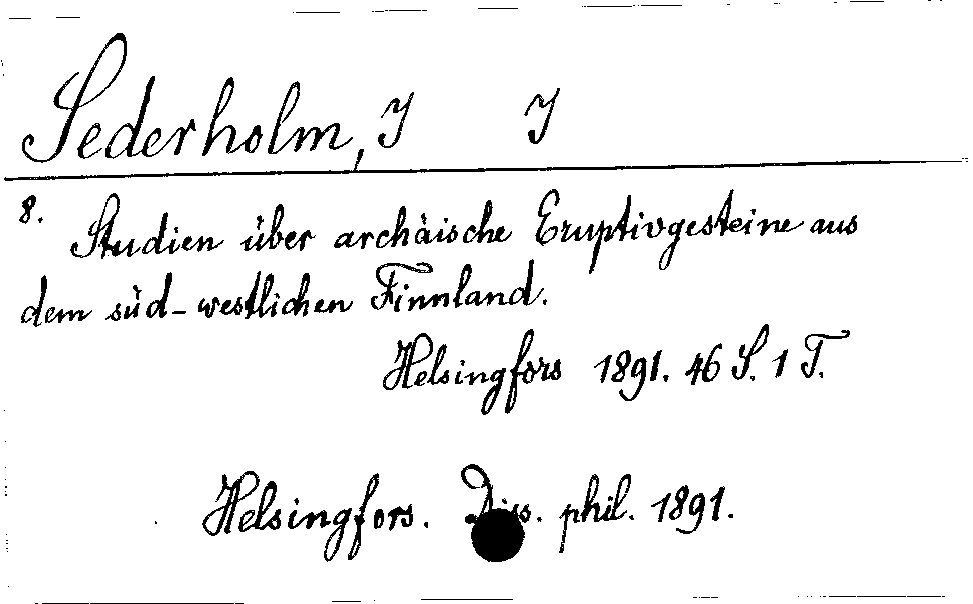 Sederholm, J J
8. Studien über archäische Eruptivgesteine aus
dem süd-westlichen Finnland.
Helsingfors 1891. 46 S. 1 T.
Helsingfors. Diss. phil. 1891.